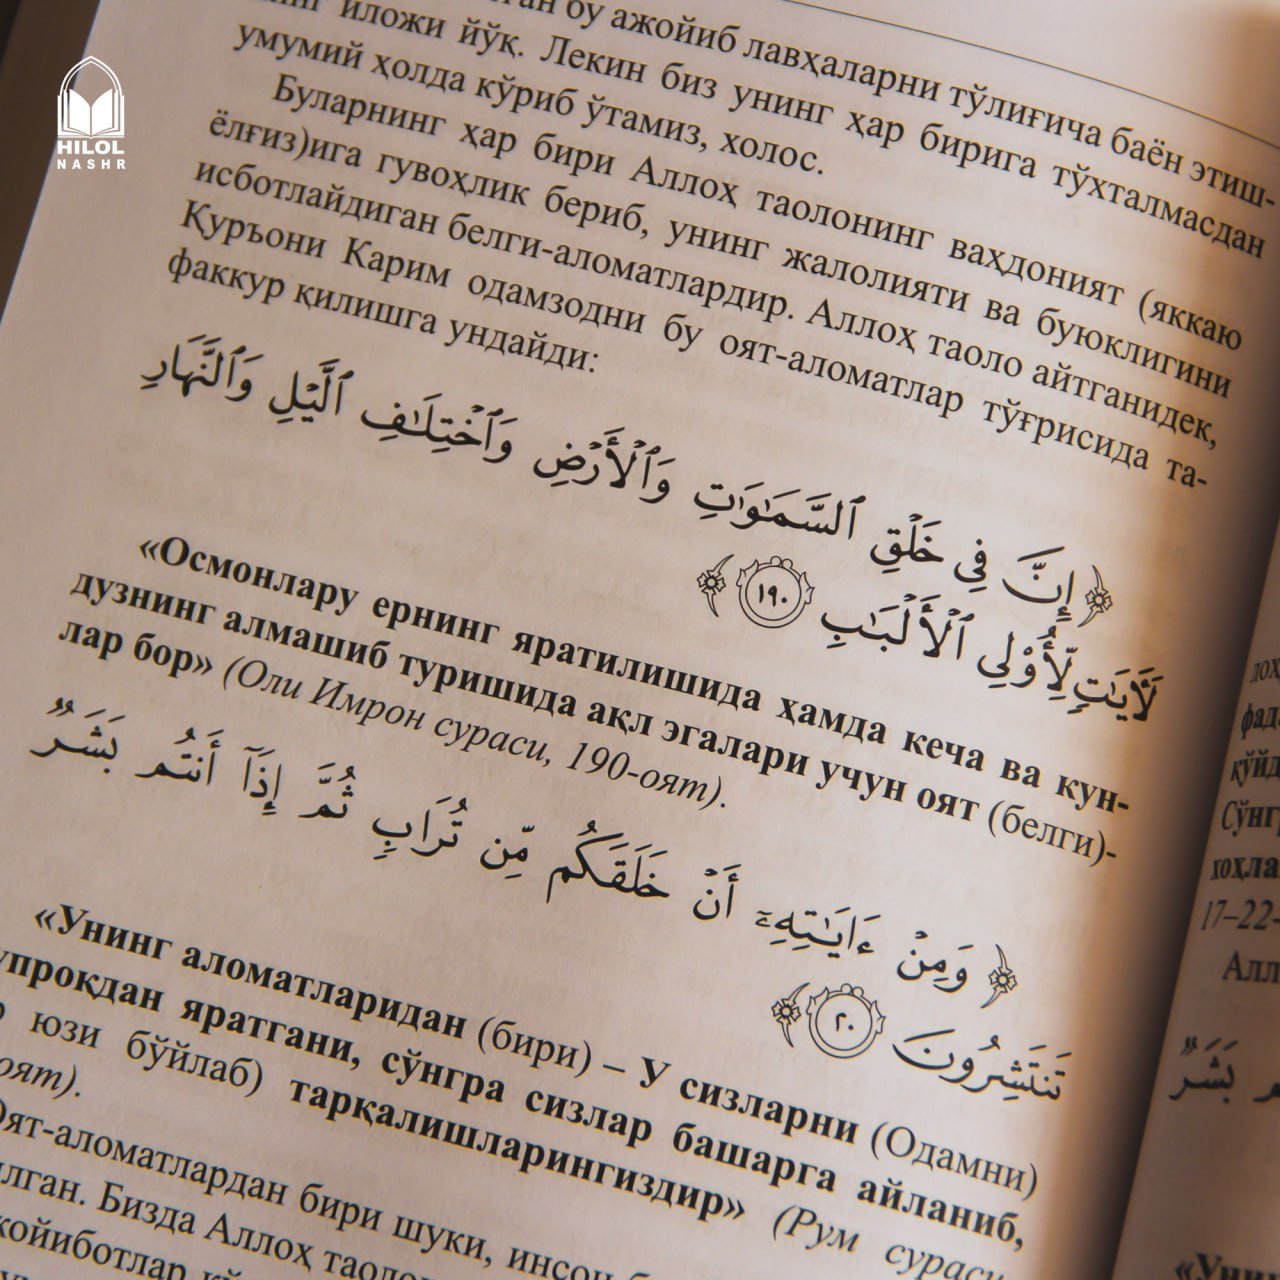 HILOL
NASHR
бу ажойиб лавҳаларни тўлиғича баён этиш-
иложи йўқ. Лекин биз унинг ҳар бирига тўхталмасдан
умумий ҳолда кўриб ўтамиз, холос.
Буларнинг ҳар бири Аллоҳ таолонинг ваҳдоният (яккаю
ёлғиз)ига гувоҳлик бериб, унинг жалолияти ва буюклигини
исботлайдиган белги-аломатлардир. Аллоҳ таоло айтганидек,
Қуръони Карим одамзодни бу оят-аломатлар тўғрисида та-
факкур қилишга ундайди:
﴿إِنَّ فِي خَلْقِ ٱلسَّمَٰوَٰتِ وَٱلْأَرْضِ وَٱخْتِلَٰفِ ٱلَّيْلِ وَٱلنَّهَارِ
لَأٓيَٰتٍ لِّأُوْلِي ٱلْأَلْبَٰبِ ١٩٠﴾
«Осмонлару ернинг яратилишида ҳамда кеча ва кун-
дузнинг алмашиб туришида ақл эгалари учун оят (белги)-
лар бор» (Оли Имрон сураси, 190-оят).
﴿وَمِنْ ءَايَٰتِهِۦٓ أَنْ خَلَقَكُم مِّن تُرَابٍ ثُمَّ إِذَآ أَنتُم بَشَرٌ
تَنتَشِرُونَ ٢٠﴾
«Унинг аломатларидан (бири) – У сизларни (Одамни)
упроқдан яратгани, сўнгра сизлар башарга айланиб,
юзи бўйлаб) тарқалишларингиздир» (Рум сураси
оят).
Оят-аломатлардан бири шуки, инсон
илган. Бизда Аллоҳ
лох
фад
қўйд
Сўнг
хоҳла
17–22-
Алл
م بَشَرٌ